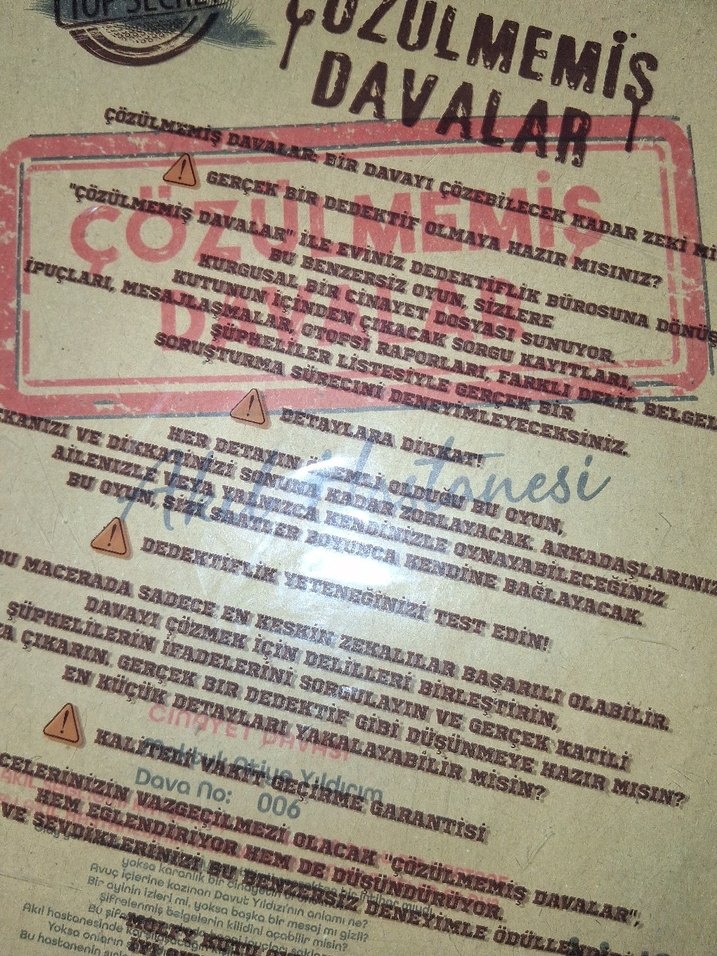 TOP SECRET
ÇÖZÜLMEMİŞ
DAVALAR
ÇÖZÜLMEMİŞ DAVALAR: BİR DAVAYI ÇÖZEBİLECEK KADAR ZEKİ Mİ
GERÇEK BİR DEDEKTİF OLMAYA HAZIR MISINIZ?
"ÇÖZÜLMEMİŞ DAVALAR" İLE EVİNİZ DEDEKTİFLİK BÜROSUNA DÖNÜŞ
BU BENZERSİZ OYUN, SİZLERE
KURGUSAL BİR CİNAYET DOSYASI SUNUYOR.
KUTUNUN İÇİNDEN ÇIKACAK SORGU KAYITLARI,
İPUÇLARI, MESAJLAŞMALAR, OTOPSİ RAPORLARI, FARKLI DELİL BELGEL
ŞÜPHELİLER LİSTESİYLE GERÇEK BİR
SORUŞTURMA SÜRECİNİ DENEYİMLEYECEKSİNİZ.
ÇÖZÜLMEMİŞ
DAVALAR
DETAYLARA DİKKAT!
HER DETAYIN ÖNEMLİ OLDUĞU BU OYUN,
EKANIZI VE DİKKATİNİZİ SONUNA KADAR ZORLAYACAK. ARKADAŞLARINIZ
AİLENİZLE VEYA YALNIZCA KENDİNİZLE OYNAYABİLECEĞİNİZ
BU OYUN, SİZİ SAATLER BOYUNCA KENDİNE BAĞLAYACAK.
Akıl Hastanesi
DEDEKTİFLİK YETENEĞİNİZİ TEST EDİN!
BU MACERADA SADECE EN KESKİN ZEKALILAR BAŞARILI OLABİLİR.
DAVAYI ÇÖZMEK İÇİN DELİLLERİ BİRLEŞTİRİN,
ŞÜPHELİLERİN İFADELERİNİ SORGULAYIN VE GERÇEK KATİLİ
A ÇIKARIN. GERÇEK BİR DEDEKTİF GİBİ DÜŞÜNMEYE HAZIR MISIN?
EN KÜÇÜK DETAYLARI YAKALAYABİLİR MİSİN?
CİNAYET DAVASI
KALİTELİ VAKİT GEÇİRME GARANTİSİ
Maktul: Atiye Yıldırım
Dava No: 006
CELERİNİZİN VAZGEÇİLMEZİ OLACAK "ÇÖZÜLMEMİŞ DAVALAR",
HEM EĞLENDİRİYOR HEM DE DÜŞÜNDÜRÜYOR.
VE SEVDİKLERİNİZİ BU BENZERSİZ DENEYİMLE ÖDÜLLENDİRİN
yoksa karanlık bir cinayetin
Avuç içlerine kazınan Davut Yıldızı'nın anlamı ne?
Bir ayinin izleri mi, yoksa başka bir mesaj mı gizli?
Şifrelenmiş belgelerin kilidini açabilir misin?
Akıl hastanesinde
Yoksa onların
Bu hastanenin
KUTU